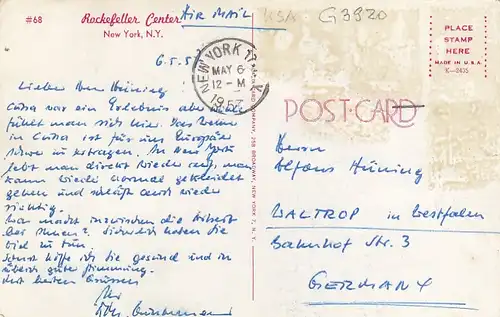 #68
Rockefeller Center
New York, N.Y.
AIR MAIL
USA
G3920
PLACE
STAMP
HERE
MADE IN U.S.A.
K-2435
NEW YORK
MAY 6
12-M
1957
POST CARD
6.5.57
Lieber Herr Hüning!
Cuba war ein Erlebnis aber
fühlt man sich hier. Das Wetter
in Cuba ist für uns Europäer
schwer zu ertragen. In New York
lebt man direkt wieder auf, man
kann wieder normal gekleidet
gehen und schläft auch wieder
richtig.
Was macht inzwischen die Arbeit
bei Ihnen? Sicherlich haben Sie
viel zu tun.
Sonst hoffe ich Sie gesund und in
guter Stimmung.
Mit besten Grüssen
Ihr
Herrn
Alfons Hüning
WALTROP in Westfalen
Bahnhof Str. 3
GERMANY